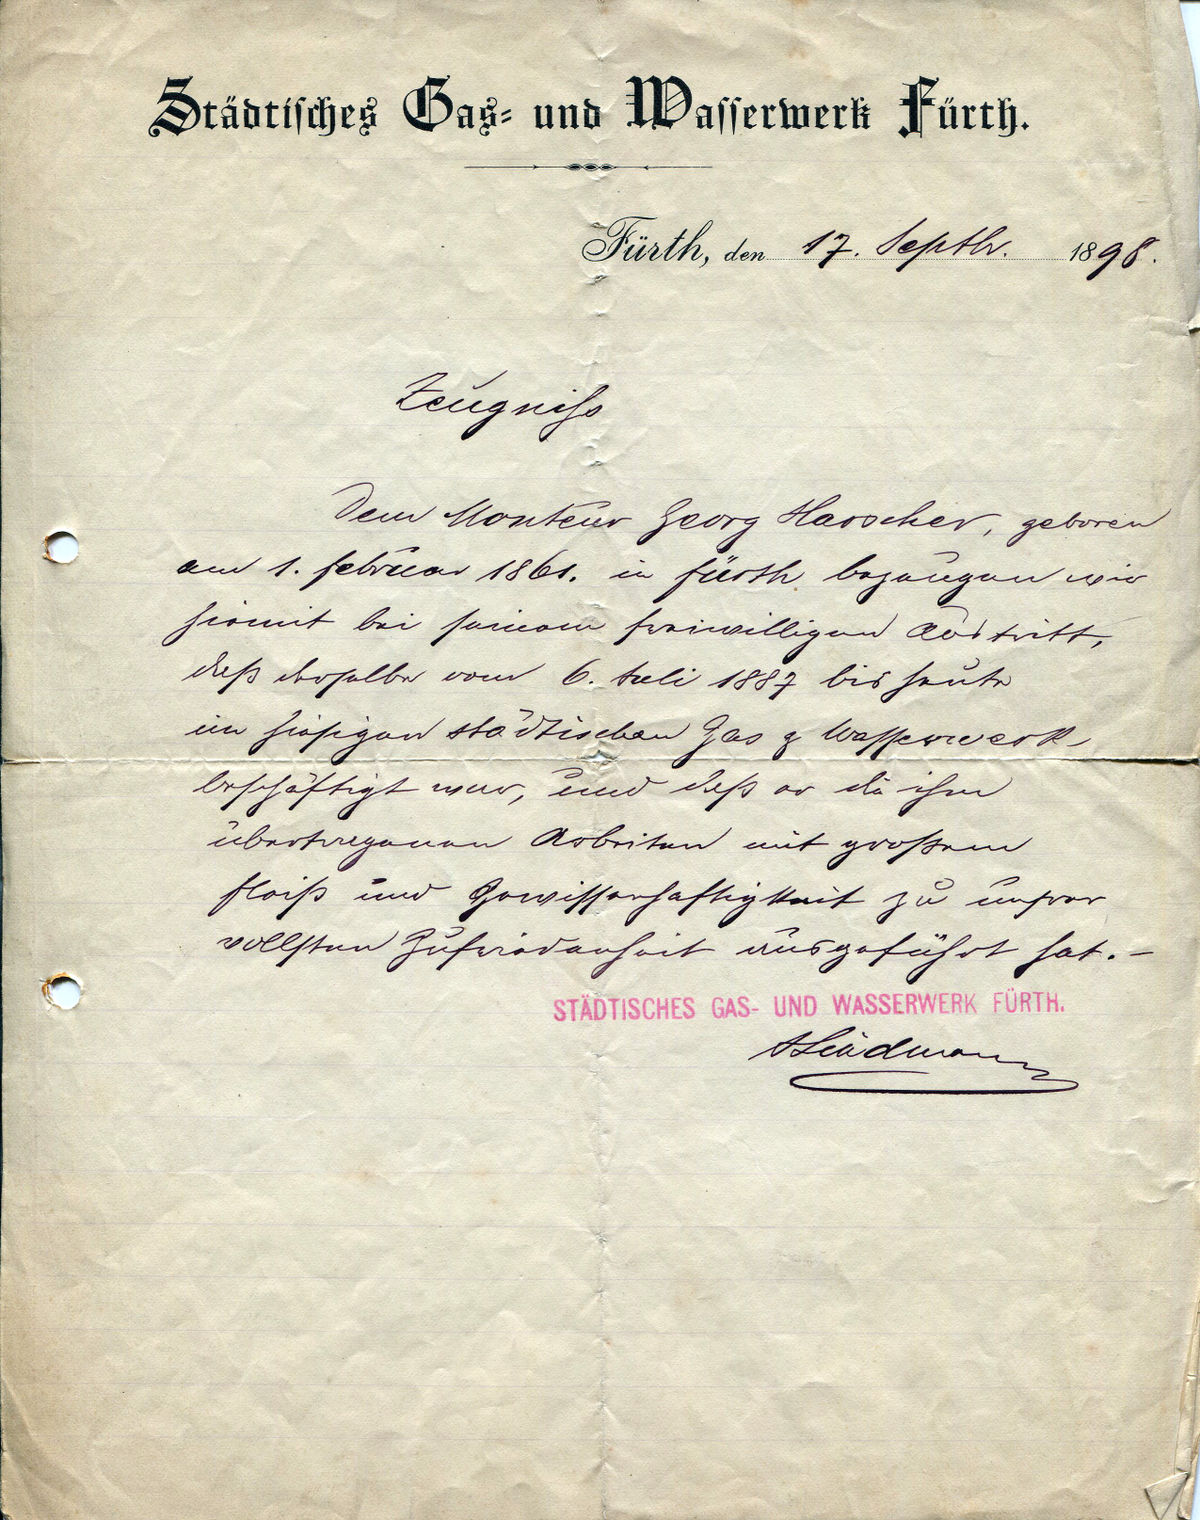 Städtisches Gas- und Wasserwerk Fürth.
Fürth, den 17. Septbr. 1898.
Zeugniss
Dem Monteur Georg Harscher, geboren
am 1. Februar 1861. in Fürth bezeugen wir
hiemit bei seinem freiwilligen Austritt,
daß derselbe vom 6. Juli 1887 bis heute
im hiesigen städtischen Gas & Wasserwerk
beschäftigt war, und daß er die ihm
übertragenen Arbeiten mit großem
Fleiß und Gewissenhaftigkeit zu unsrer
vollsten Zufriedenheit ausgeführt hat. –
STÄDTISCHES GAS- UND WASSERWERK FÜRTH.